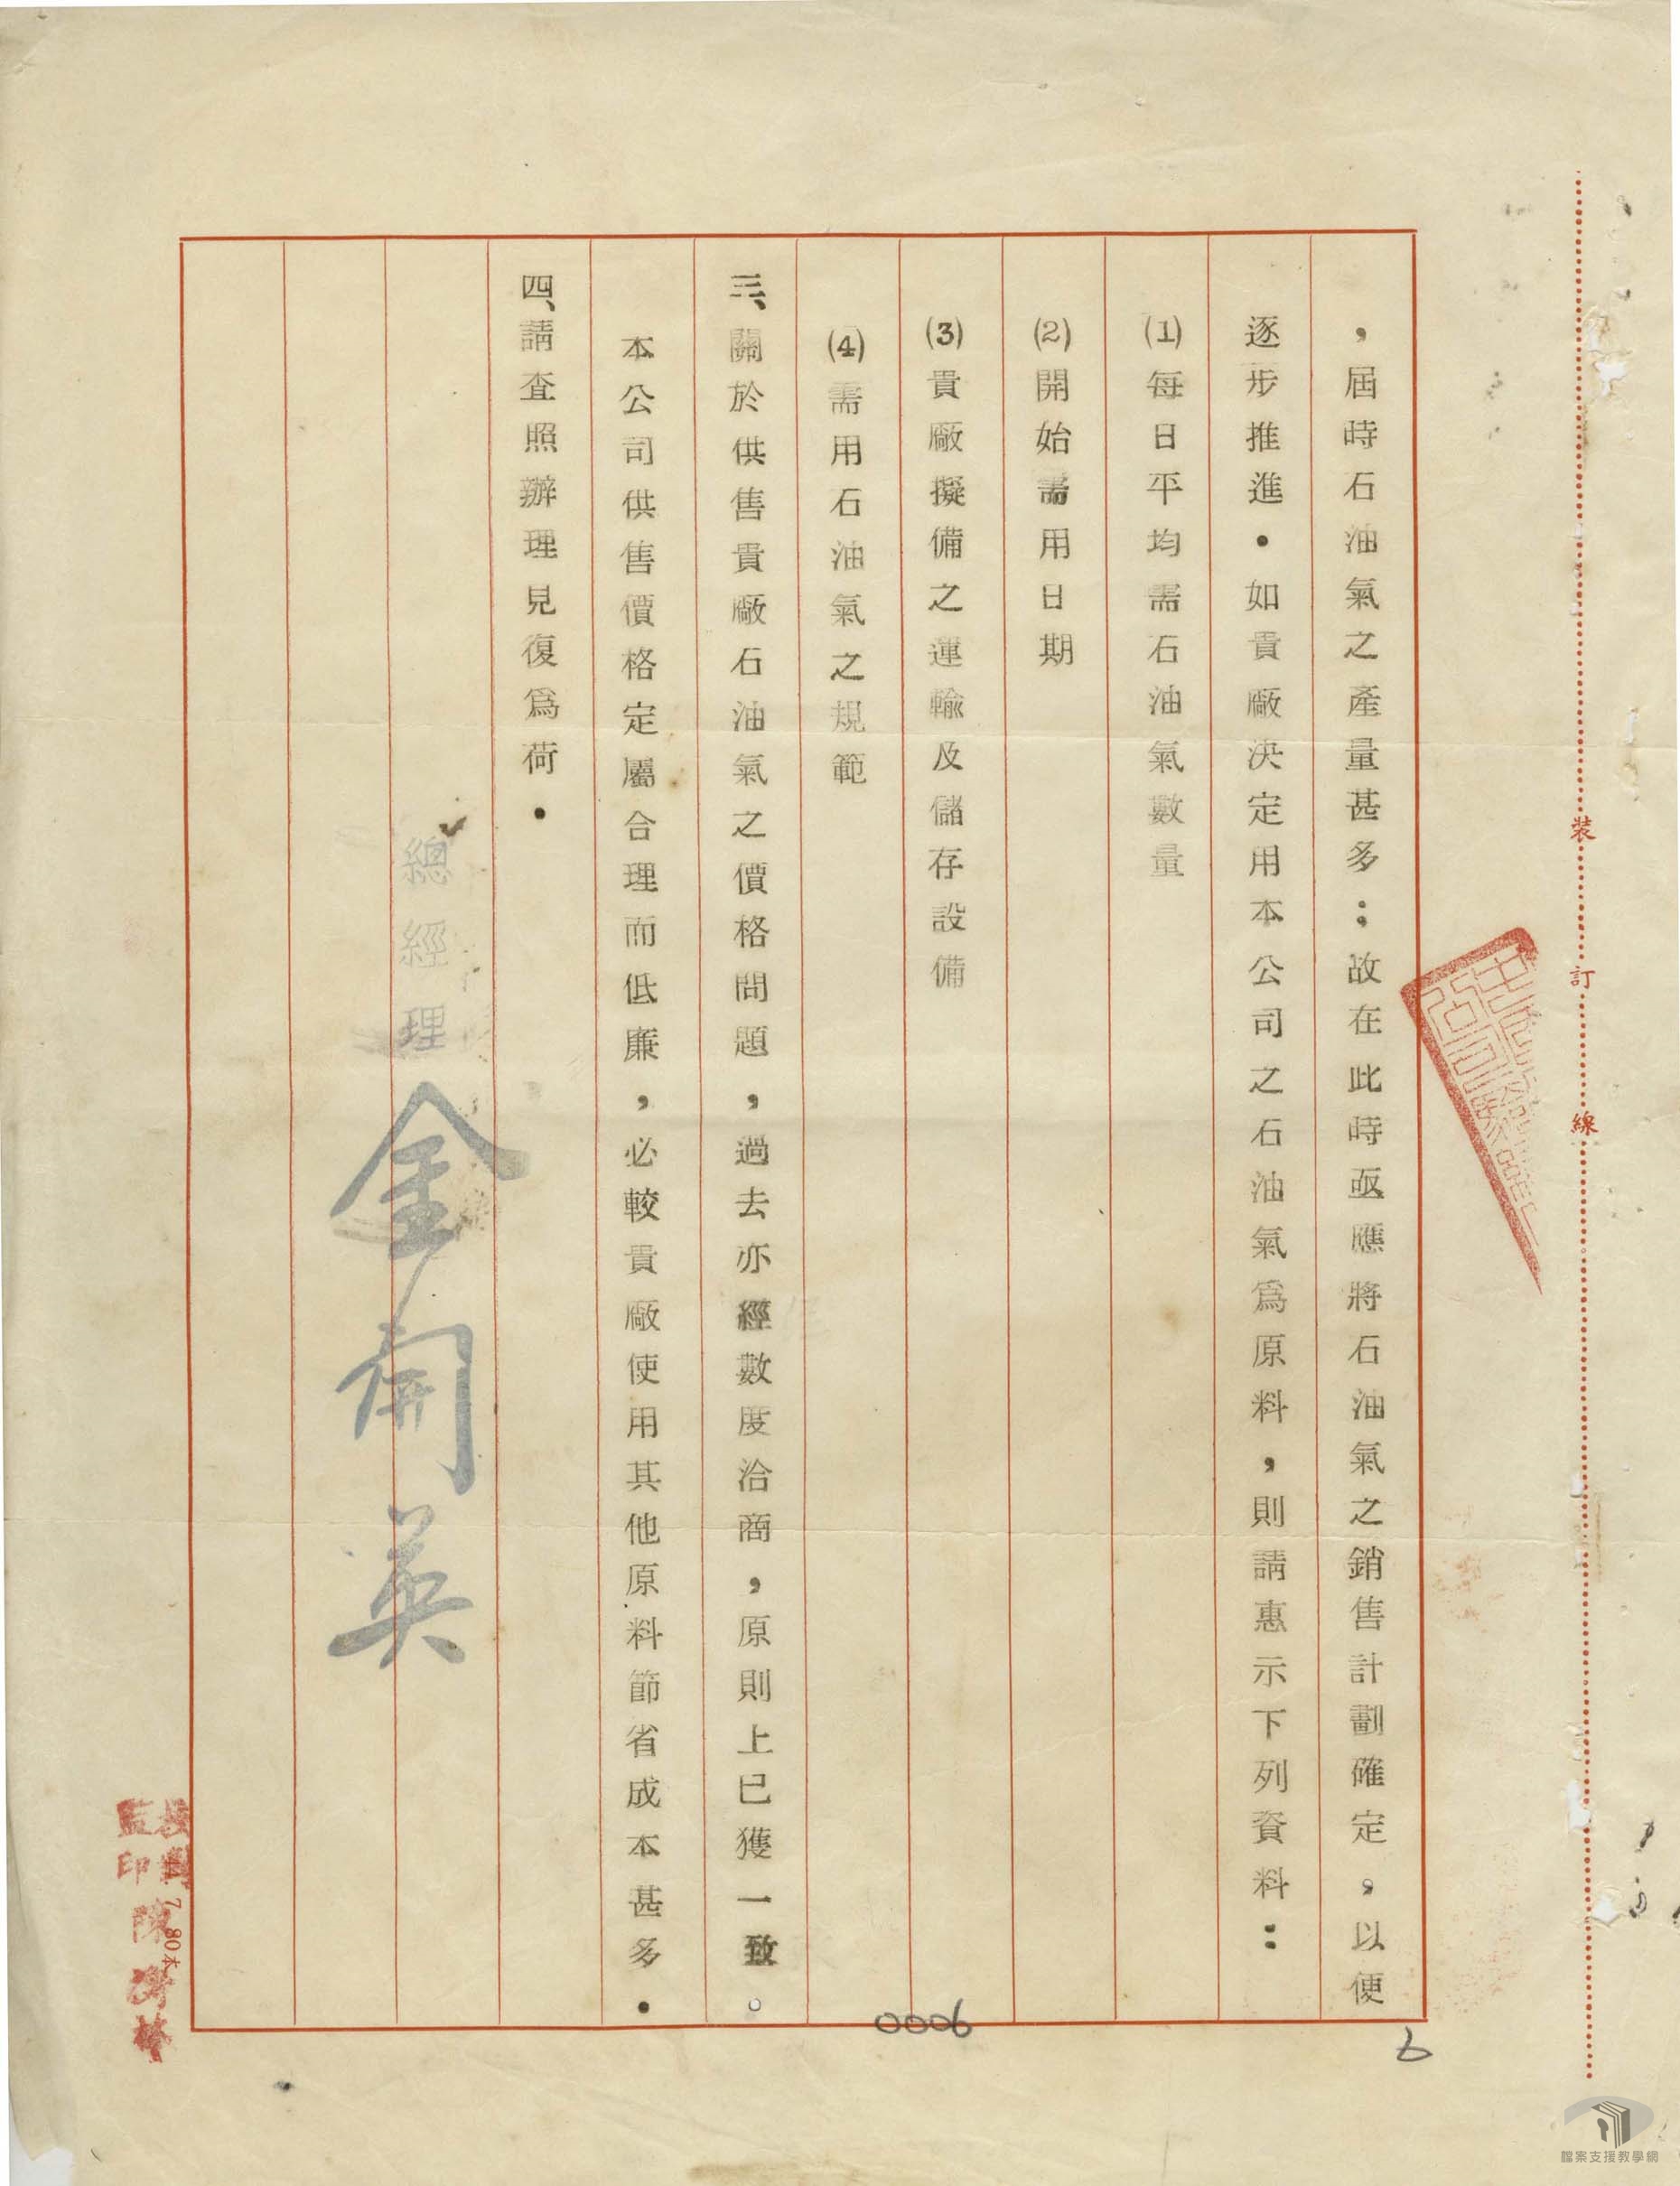 ，屆時石油氣之產量甚多；故在此時亟應將石油氣之銷售計劃確定，以便
逐步推進．如貴廠決定用本公司之石油氣爲原料，則請惠示下列資料：
(1)每日平均需石油氣數量
(2)開始需用日期
(3)貴廠擬備之運輸及儲存設備
(4)需用石油氣之規範
三、關於供售貴廠石油氣之價格問題，過去亦經數度洽商，原則上已獲一致。
本公司供售價格定屬合理而低廉，必較貴廠使用其他原料節省成本甚多．
四、請查照辦理見復爲荷．
總經理 金開英
裝 訂 線
監印 陳
0006
6
檔案支援教學網